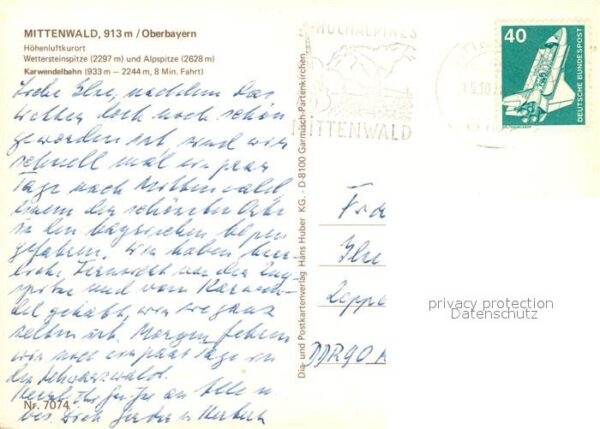 MITTENWALD, 913 m / Oberbayern
Höhenluftkurort
Wettersteinspitze (2297 m) und Alpspitze (2628 m)
Karwendelbahn (933 m – 2244 m, 8 Min. Fahrt)
Liebe Ilse, nachdem das
Wetter doch noch schön
geworden ist sind wir
schnell mal ein paar
Tage nach Mittenwald
einem der schönsten Orte
in den bayrischen Alpen
gefahren. Wir haben herr-
liche Fernsicht von der Zug-
spitze und vom Karwen-
del gehabt, wie sie ganz
selten ist. Morgen fahren
wir noch ein paar Tage in
den Schwarzwald.
Herzl. Grüße an Alle u.
bes. Dich
Nr. 7074
Dia- und Postkartenverlag Hans Huber KG. - D-8100 Garmisch-Partenkirchen
HOCHALPINES
MITTENWALD
40
DEUTSCHE BUNDESPOST
Ilse
privacy protection
Datenschutz